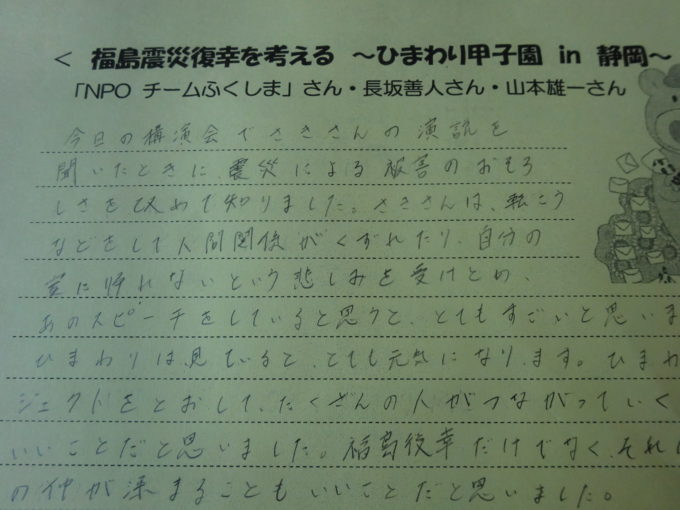 < 福島震災復幸を考える ～ひまわり甲子園 in 静岡～
「NPO チームふくしま」さん・長坂善人さん・山本雄一さん
今日の構演会でさきさんの演説を
聞いたときに、震災による被害のおそろ
しさを改めて知りました。さきさんは、転こう
などをして人間関係がくずれたり、自分の
家に帰れないという悲しみを受けとめ、
あのスピーチをしていると思うと、とてもすごいと思いま
ひまわりは見ていると、とても元気になります。ひまわ
ジェクトをとおして、たくさんの人がつながっていく
いいことだと思いました。福島復幸だけでなく、それ
の仲が深まることもいいことだと思いました。